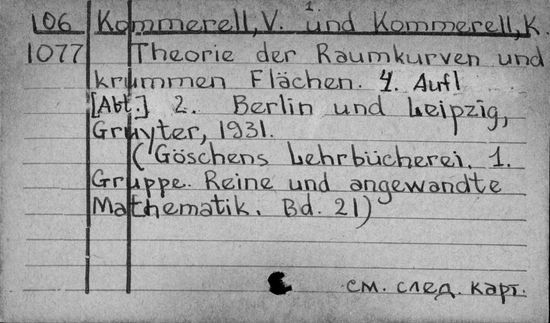 106 Kommerell, V. und Kommerell, K.
1077 Theorie der Raumkurven und
krummen Flächen. 4. Aufl
[Abt.] 2. Berlin und Leipzig,
Gruyter, 1931.
(Göschens Lehrbücherei. 1.
Gruppe. Reine und angewandte
Mathematik. Bd. 21)
см. след. карт.